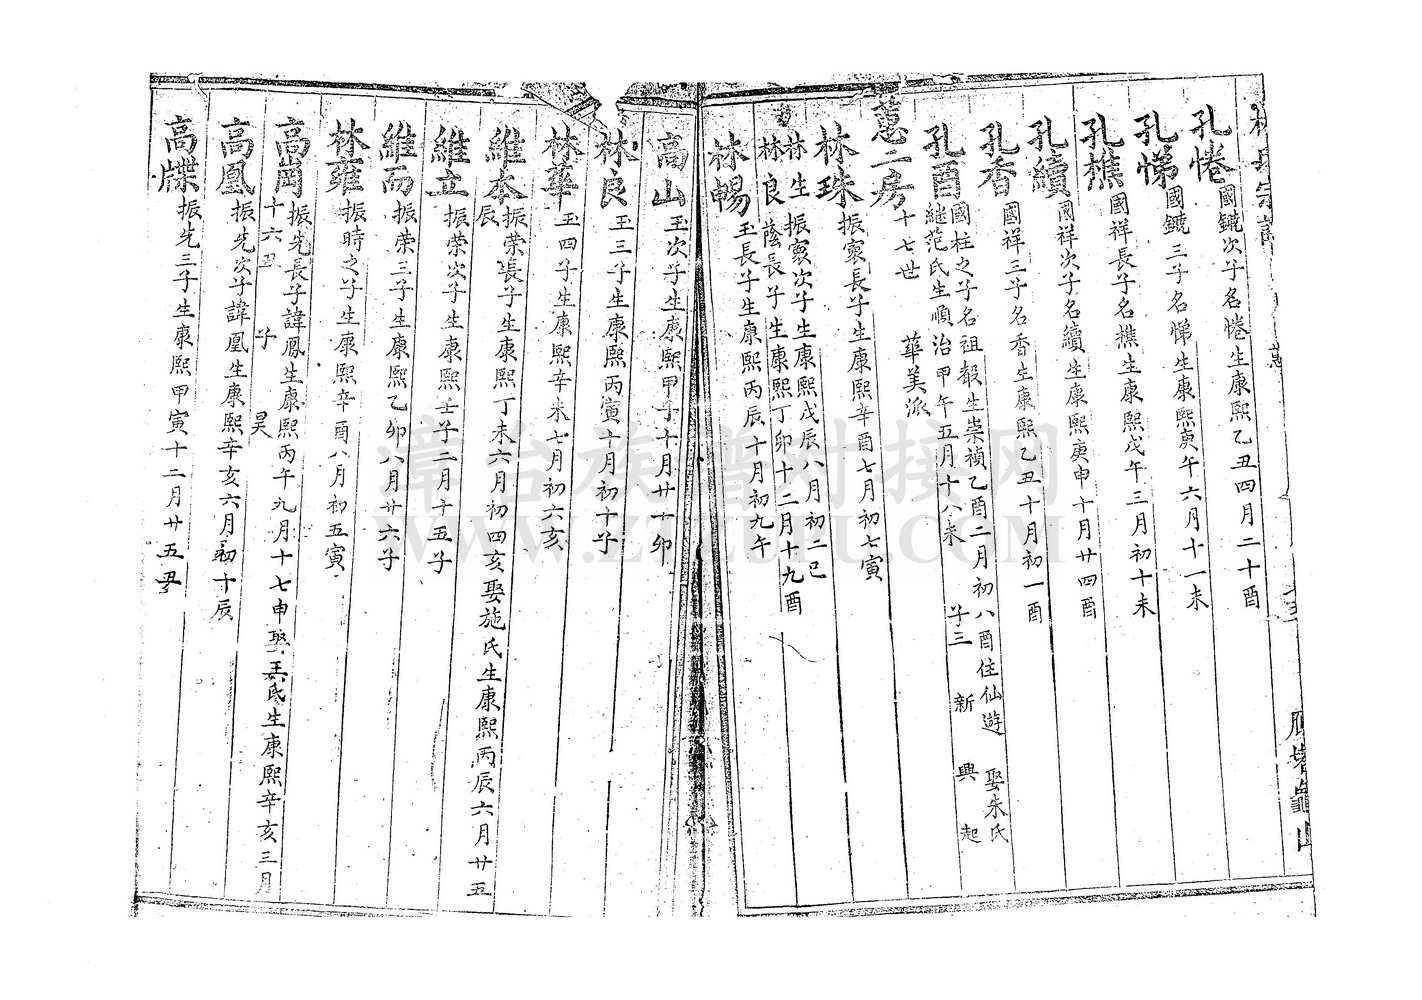 林氏宗譜
孔惓 國鑣次子名惓生康熙乙丑四月二十酉
孔悌 國鑣三子名悌生康熙庚午六月十一未
孔樵 國祥長子名樵生康熙戊午三月初十未
孔續 國祥次子名續生康熙庚申十月廿四酉
孔香 國祥三子名香生康熙乙丑十月初一酉
孔酉 國柱之子名祖穀生崇禎乙酉二月初八酉住仙遊 娶朱氏
継范氏生順治甲午五月十八未 子三 新 興 起
蕙二房 十七世 華美派
林珠 振寰長子生康熙辛酉七月初七寅
林生 振寰次子生康熙戊辰八月初二巳
林良 蔭長子生康熙丁卯十二月十九酉
林暢 玉長子生康熙丙辰十月初九午
高山 玉次子生康熙甲子十月廿十卯
林良 玉三子生康熙丙寅十月初十子
林華 玉四子生康熙辛未七月初六亥
維本 振荣長子生康熙丁未六月初四亥娶施氏生康熙丙辰六月廿五
辰
維立 振荣次子生康熙壬子二月十五子
維而 振荣三子生康熙乙卯八月廿六子
林雍 振時之子生康熙辛酉八月初五寅
高崗 振先長子諱鳳生康熙丙午九月十七申娶吴氏生康熙辛亥三月
十六丑 子 昊
高凰 振先次子諱凰生康熙辛亥六月初十辰
高牒 振先三子生康熙甲寅十二月廿五丑
漳台族谱对接网
WWW.ZTZUPU.COM